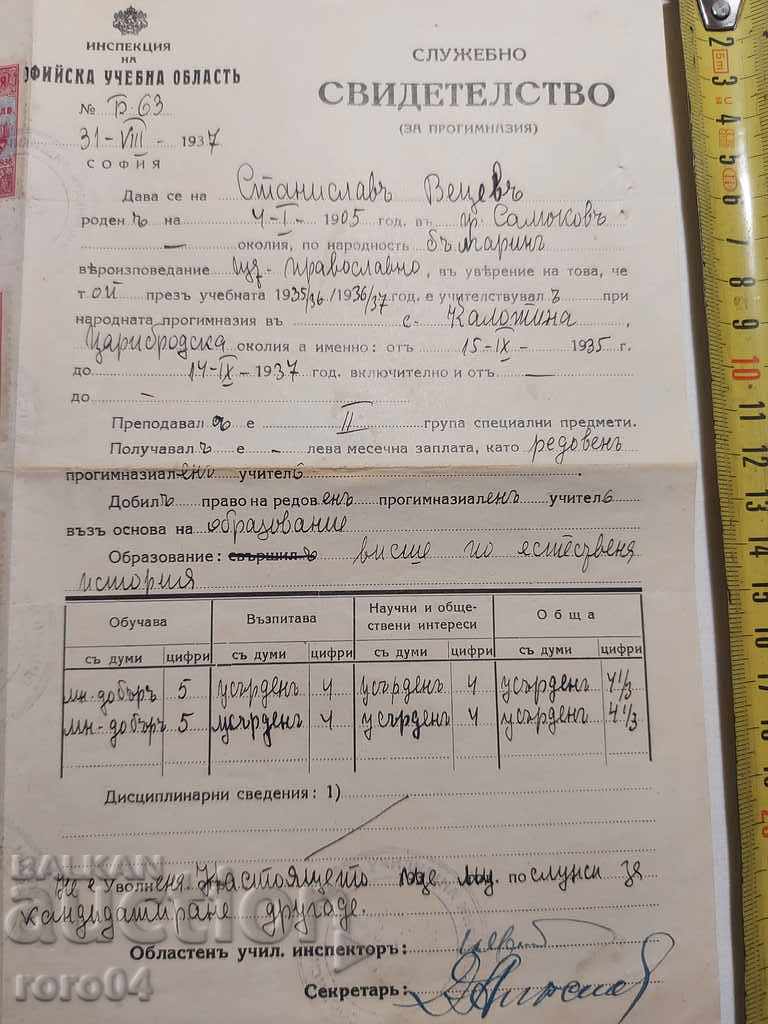 ИНСПЕКЦИЯ
НА
ОФИЙСКА УЧЕБНА ОБЛАСТЬ
№ В-63
31-VIII-1937
СОФИЯ
СЛУЖЕБНО
СВИДЕТЕЛСТВО
(ЗА ПРОГИМНАЗИЯ)
Дава се на Станиславъ Вецевъ
роденъ на 4-I-1905 год. въ гр. Самоковъ
— околия, по народность българинъ
вѣроизповедание изт.-православно, въ увѣрение на това, че
той презъ учебната 1935/36/1936/37 год. е учителствувалъ при
народната прогимназия въ с. Каложина,
Царибродска околия а именно: отъ 15-IX-1935 г.
до 14-IX-1937 год. включително и отъ —
до -
Преподавалъ е II група специални предмети.
Получавалъ е - лева месечна заплата, като редовенъ
прогимназиаленъ учителъ.
Добилъ право на редовенъ прогимназиаленъ учителъ
възъ основа на образование
Образование: свършилъ висше по естествена
история
Обучава Възпитава Научни и обще-ствени интереси Обща
съ думи цифри съ думи цифри съ думи цифри съ думи цифри
мн.-добъръ 5 усърденъ 4 усърденъ 4 усърденъ 4 1/3
мн.-добъръ 5 усърденъ 4 усърденъ 4 усърденъ 4 1/3
Дисциплинарни сведения: 1)
Не е уволненя. Настоящето ще му послужи за
кандидатиране другаде.
Областенъ учил. инспекторъ:
Секретарь:
BALKAN
auction
roro04
2 3 4 5 6 7 8 9 10 11 12 13 14 15 16 17 18 19 20